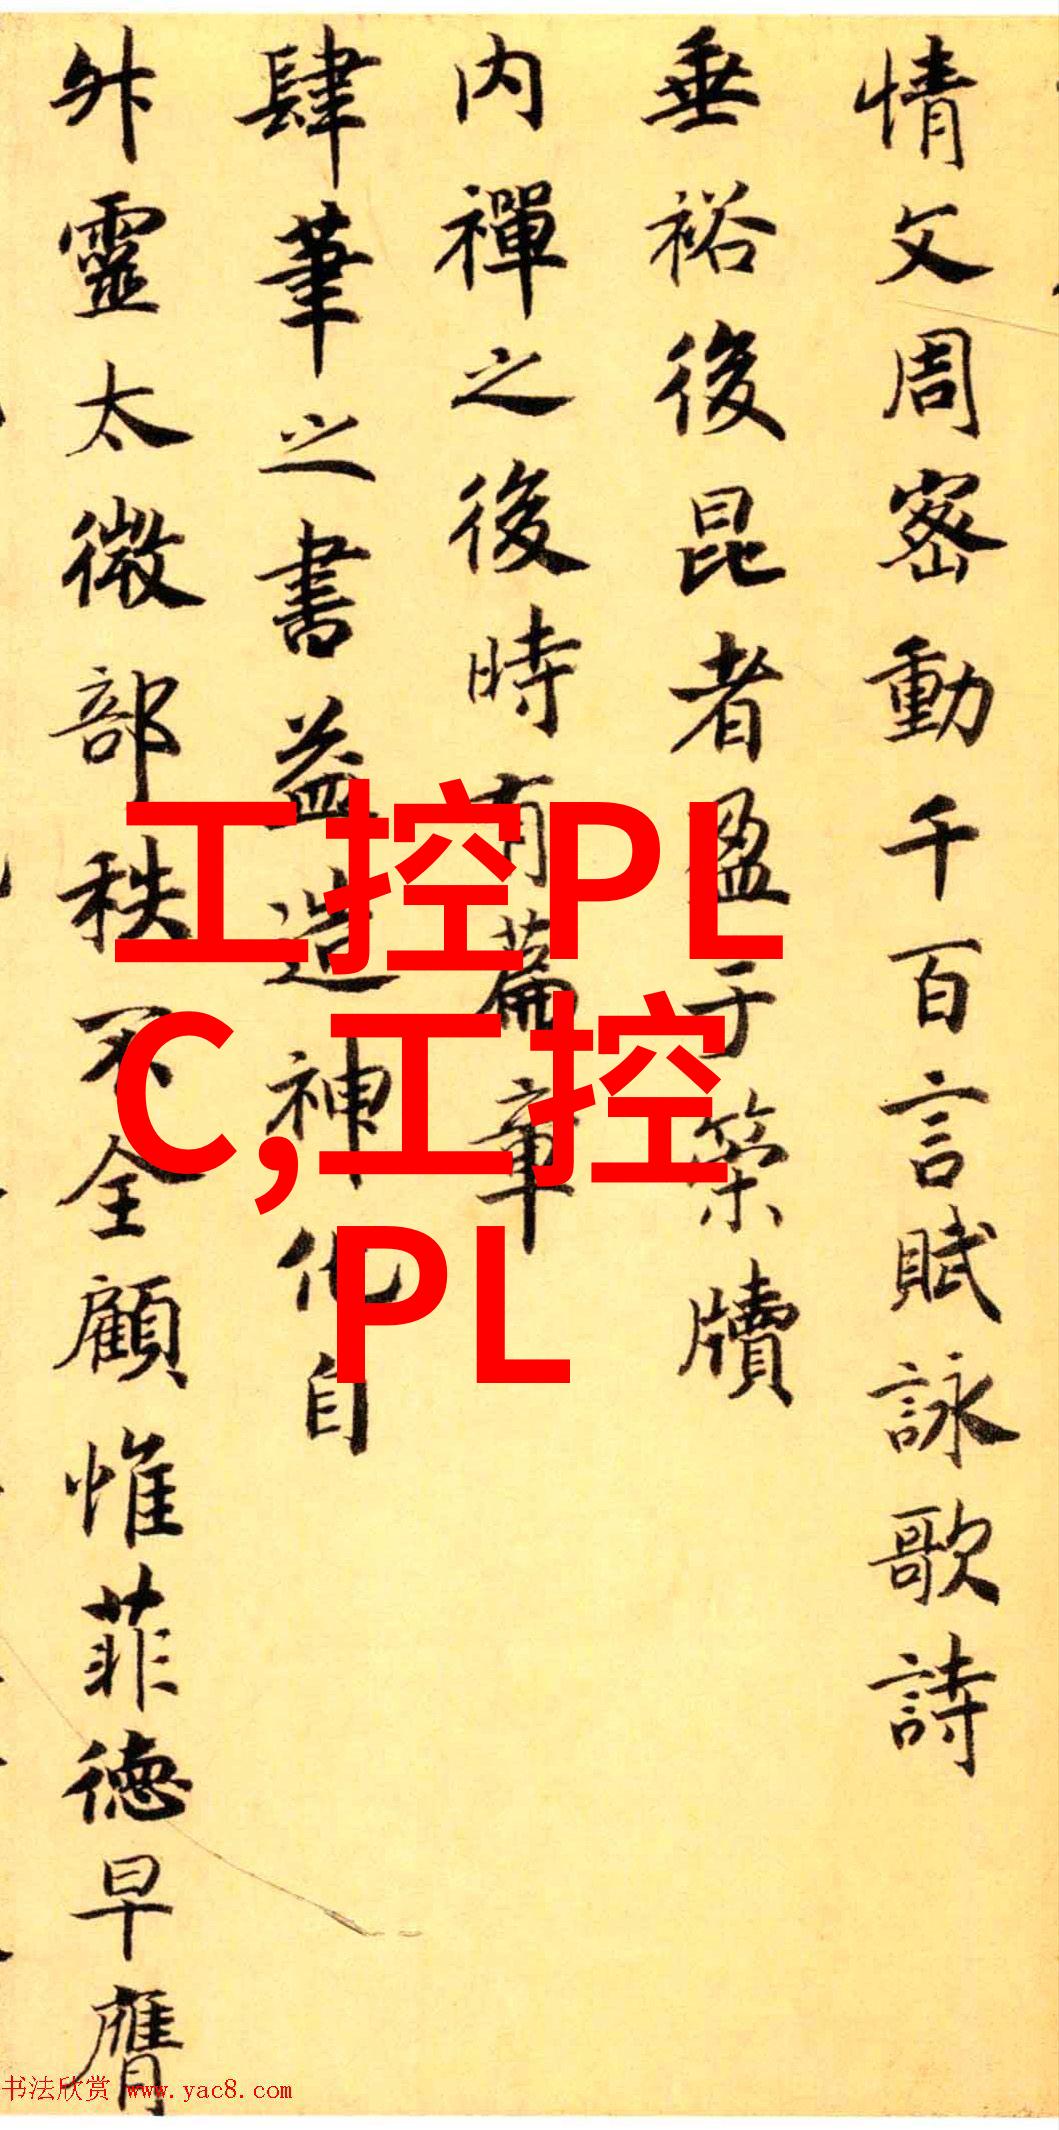 情文周密動千百言賦詠歌詩
垂裕後昆者盈于簡牘
内禪之後時有篇章
肆筆之書益造神化自
外靈太微部秩不全顧惟菲德早膺
工控PL
C,工控
PL
书法欣赏 www.yac8.com